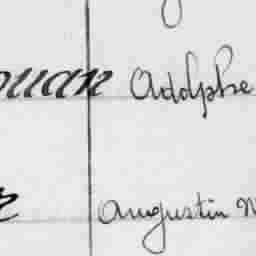 ouan Adolphe
Augustin